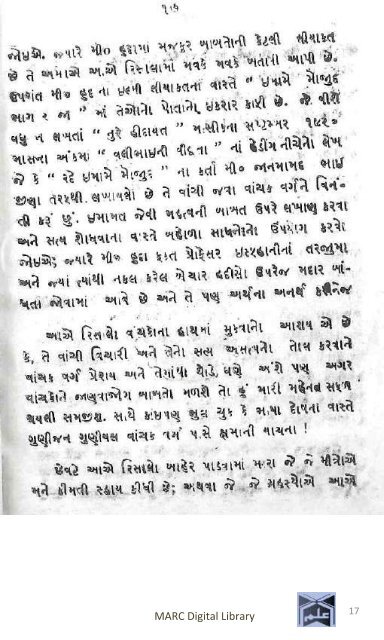 ૧૭
જોઇએ. જ્યારે મી૦ હુદામાં મજકુર બાબતોની કેટલી લીયાકત
છે તે અમોએ આ.એ રિસાલામાં મવકે મવકે બતાવી આપી છે.
ઉપરાંત મી૦ હુદાના ઇલમી લીયાકતના વાસ્તે " ઇમામે મોજુદ
ભાગ ૨ જા " માં તેઓનો પોતાનો ઇકરાર કાફી છે. જે વીશે
વધુ ન લખતાં " નુરે હીદાયત " માસીકના સપ્ટેમ્બર ૧૯૨૦
માસના અંકમાં " વલીભાઇની વીદ્વતા " નાં હેડીંગ નીચેનો લેખ
જે કે " રદે ઇમામે મોજુદ " ના કર્તા મી૦ જાનમામદ ભાઇ
જીણા તરફથી લખાયલો છે તે વાંચી જવા વાંચક વર્ગને વિનં-
તી કરૂં છું. ઇમામત જેવી મહત્વની બાબત ઉપરે લખાણ કરવા
અને સત્ય શોધવાના વાસ્તે બહોળા સાધનોનો ઉપયોગ કરવો
જોઇએ; જ્યારે મી૦ હુદા ફક્ત પ્રોફેસર ઇસ્ફહાનીનાં તરજુમા
અને જ્યાં ત્યાંથી નકલ કરેલ બે ચાર હદીસો ઉપરજ મદાર બાં-
ધતા જોવામાં આવે છે અને તે પણ અર્થના અનર્થ કરીનેજ
આએ રિસાલો વાંચકોના હાથમાં મુકવાનો આશય એ છે
કે, તે વાંચી વિચારી અને તેનો સત્ય અસત્યનો તોલ કરવાને
વાંચક વર્ગ પ્રેરાય અને તેમાંથી થોડે ઘણે અંશે પણ અગર
વાંચકોને જાણવાજોગ બાબતો મળશે તો હું મારી મહેનત સફળ
થયલી સમજીશ. સાથે કાંઇપણ ભુલ ચુક કે ભાષા દોષના વાસ્તે
ગુણીજન ગુણીયલ વાંચક વર્ગ પાસે ક્ષમાની યાચના !
છેવટે આએ રિસાલો બાહેર પાડવામાં મારા જે જે મીત્રોએ
મને કીમતી સહાય કીધી છે; અથવા જે જે ગ્રહસ્થોએ આએ
MARC Digital Library
علم
17